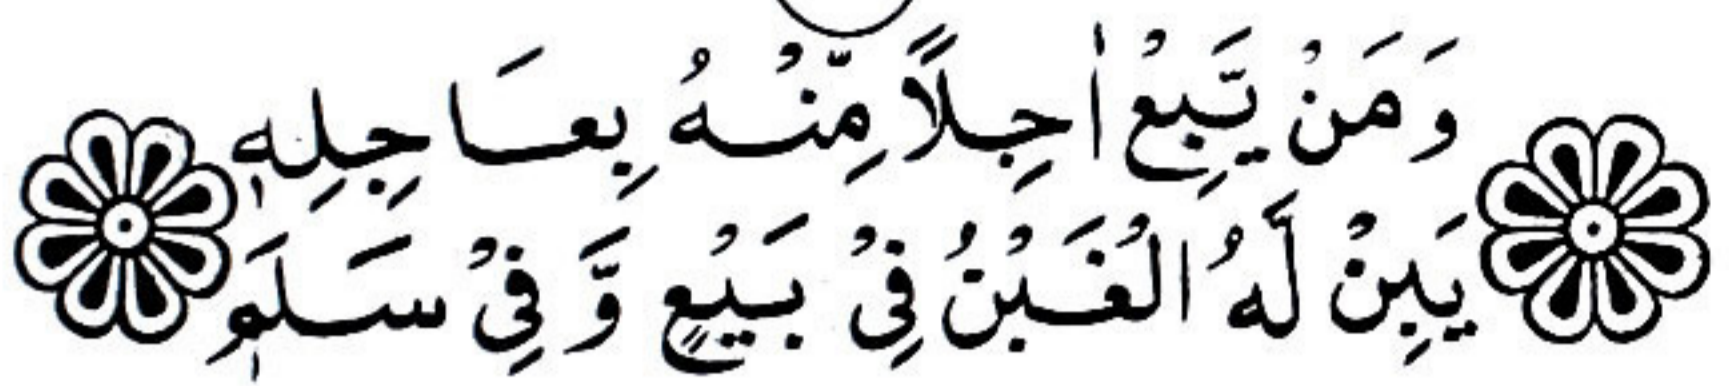 وَمَنْ يَّبِعْ اٰجِلًا مِّنْهُ بِعَاجِلِهٖ
يَبِنْ لَّهُ الْغَبْنُ فِیْ بَيْعٍ وَّفِیْ سَلَمٖ